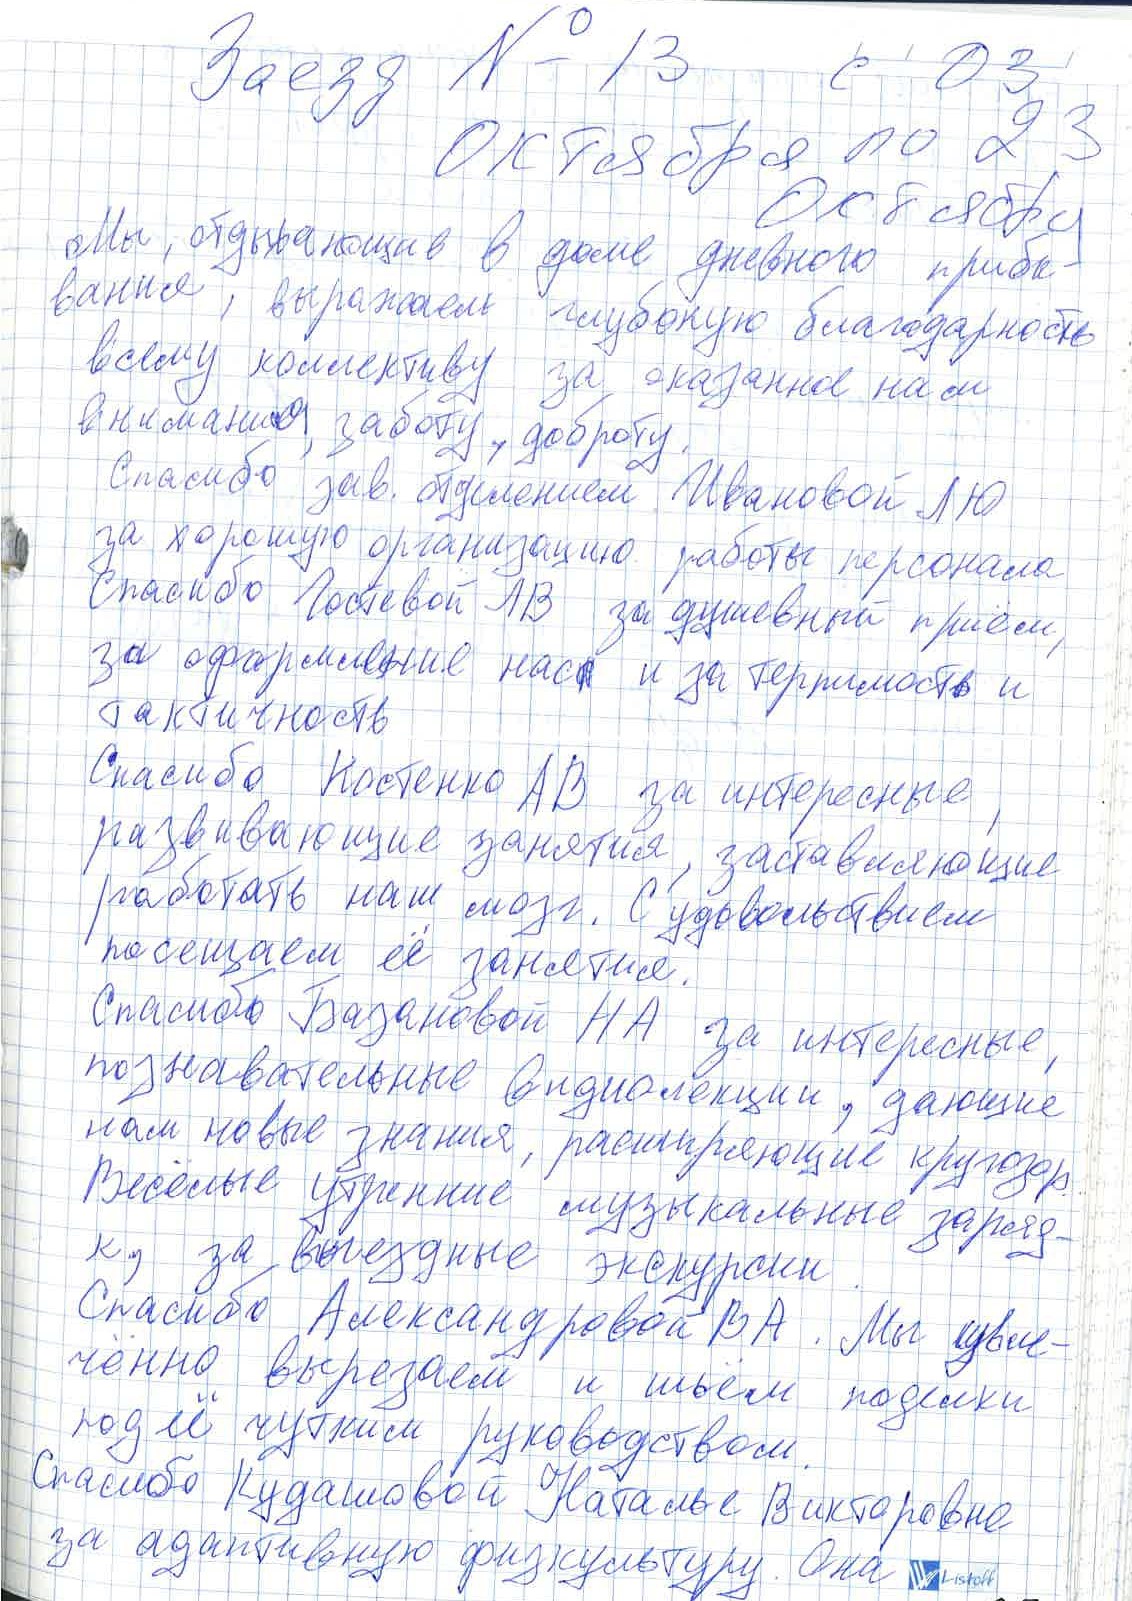 Заезд № 13 с 03
октября по 23
октября
Мы, отдыхающие в доме дневного пребы-
вания, выражаем глубокую благодарность
всему коллективу за оказанное нам
внимание, заботу, доброту.
Спасибо зав. отделением Ивановой ЛЮ
за хорошую организацию работы персонала
Спасибо Гостевой ЛВ за душевный приём,
за оформление нас и за терпимость и
тактичность
Спасибо Костенко АВ за интересные,
развивающие занятия, заставляющие
работать наш мозг. С удовольствием
посещаем её занятия.
Спасибо Базановой НА за интересные,
познавательные видиолекции, дающие
нам новые знания, расширяющие кругозор.
Весёлые утренние музыкальные заряд-
к, за выездные экскурсии.
Спасибо Александровой ВА. Мы увле-
чённо вырезаем и шьём поделки
под её чутким руководством.
Спасибо Кудашовой Наталье Викторовне
за адаптивную физкультуру. Она
Listoff